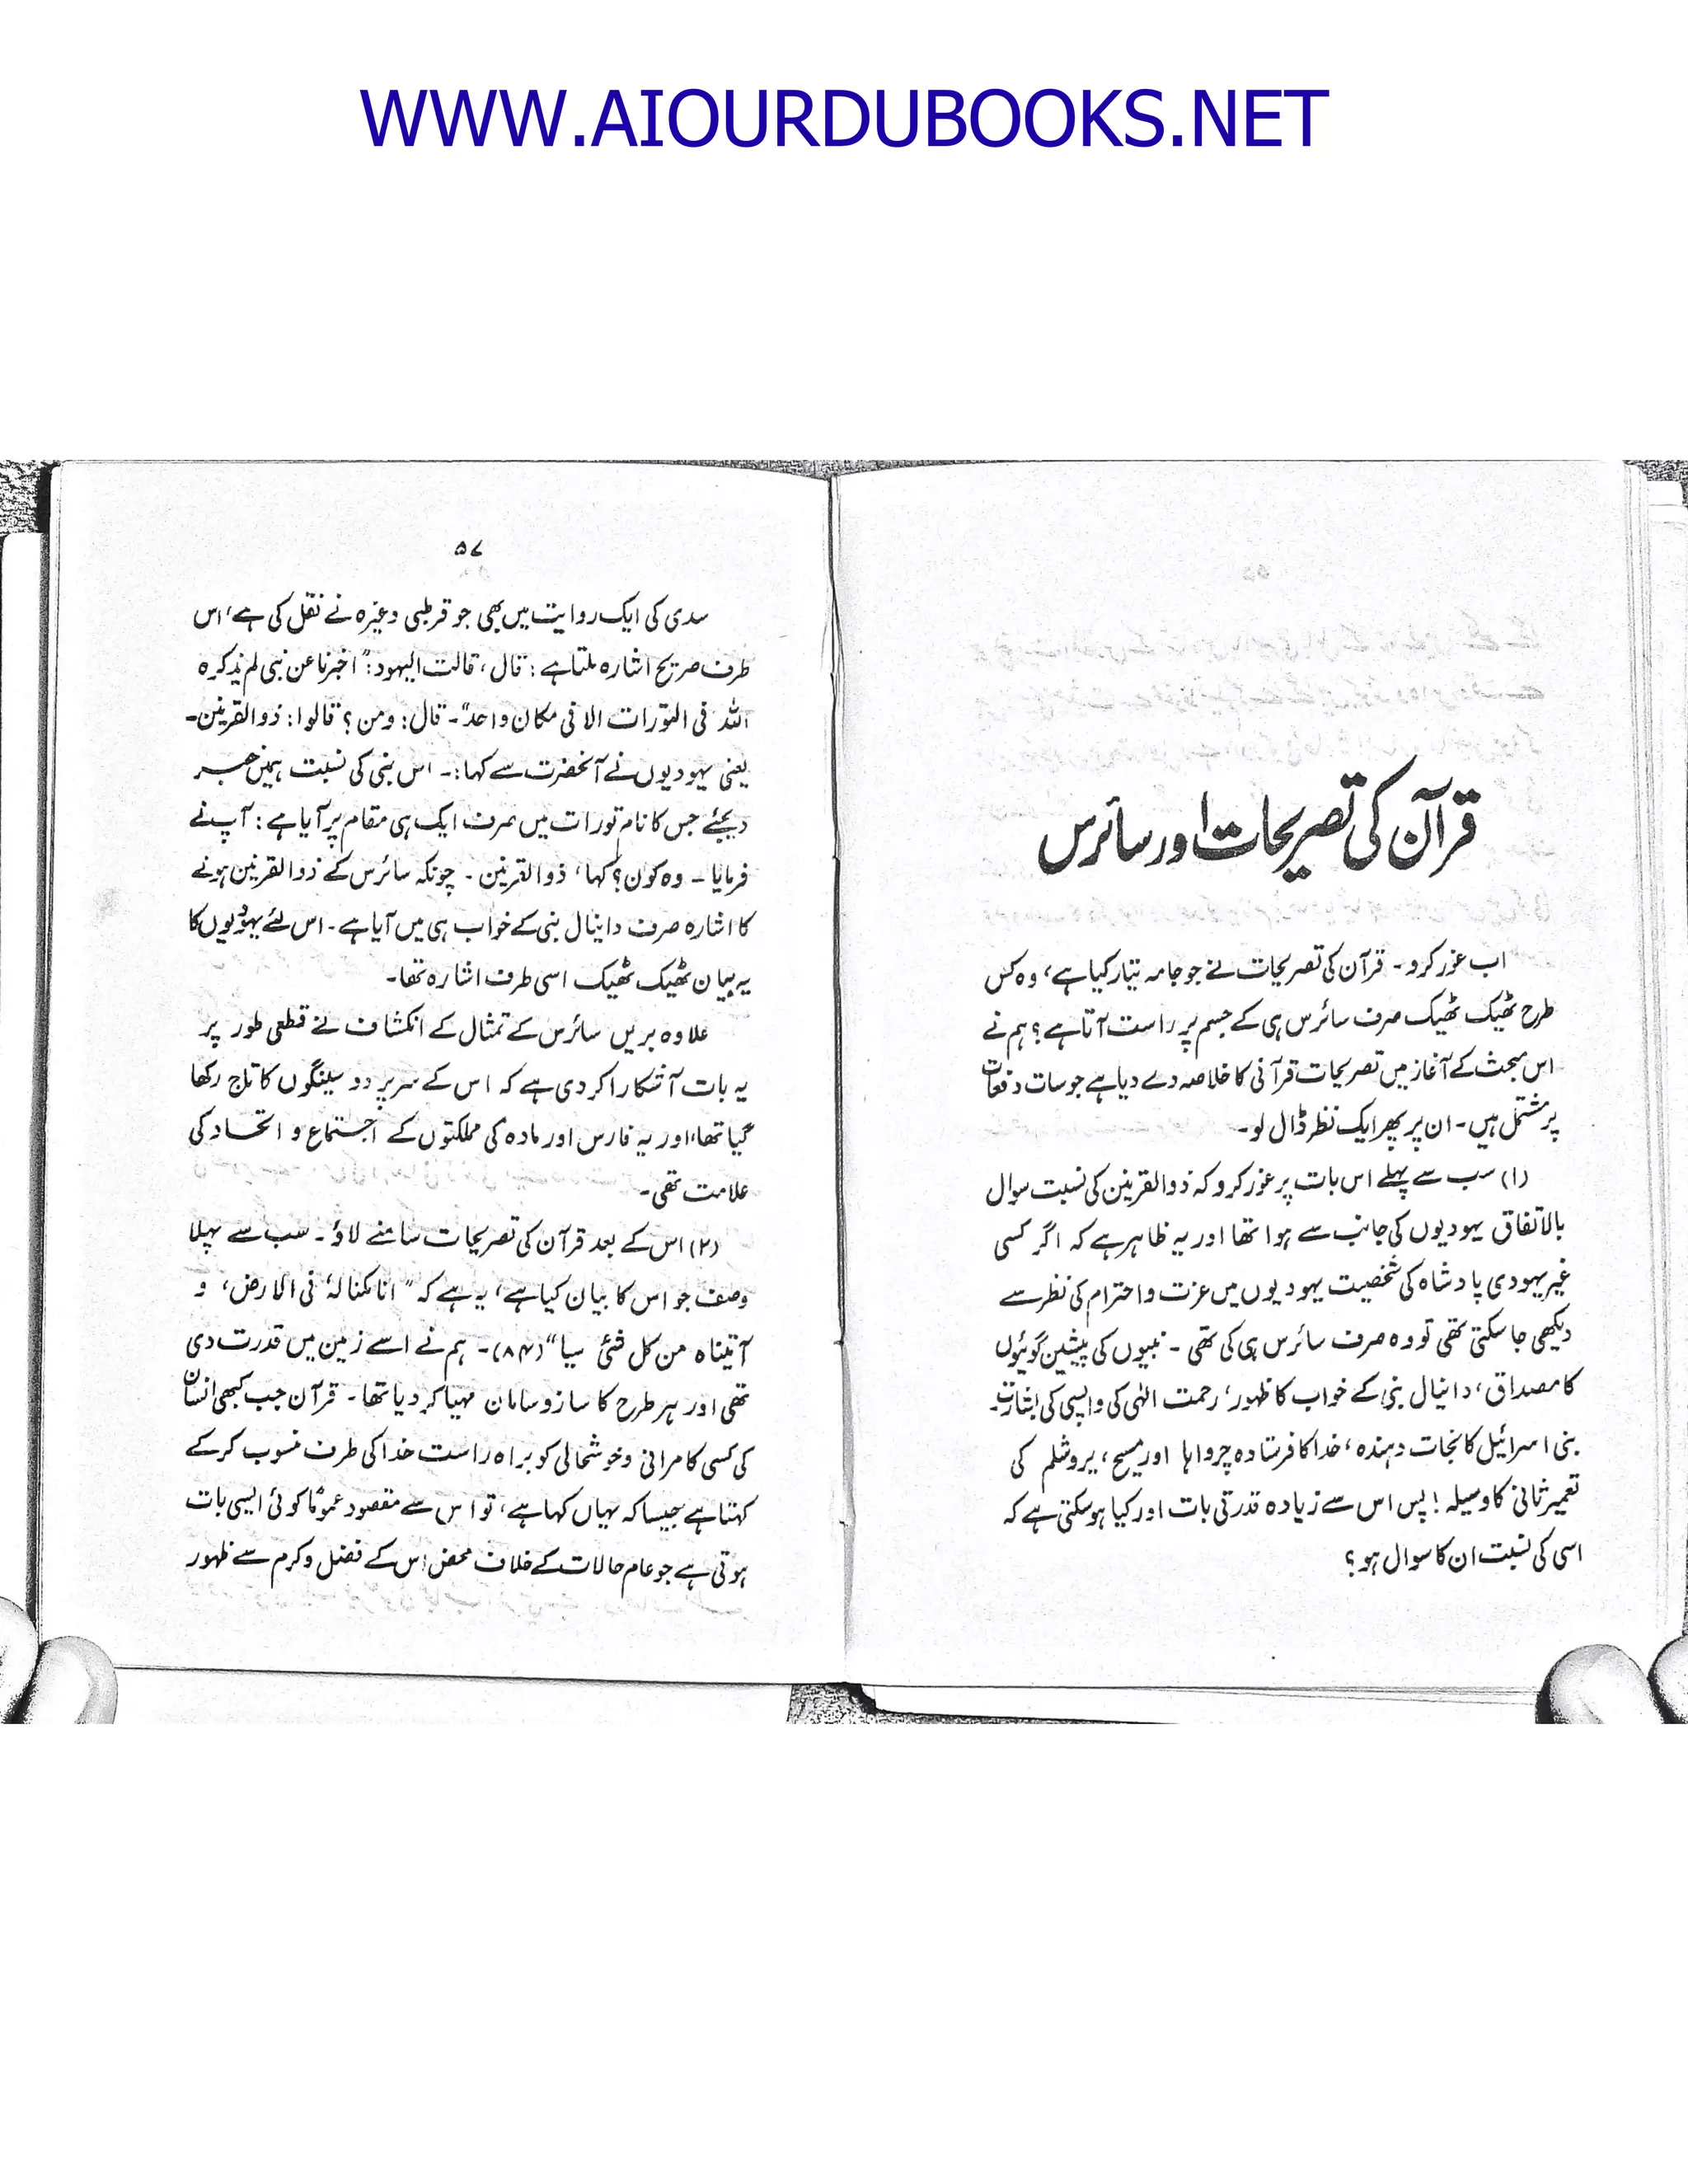 WWW.AIOURDUBOOKS.NET
قرآن کی تصریحات اور سائرس
اب غور کرو۔ قرآن کی تصریحات نے جو جامہ تیار کیا ہے، وہ کس
طرح ٹھیک ٹھیک صرف سائرس ہی کے جسم پر راست آتا ہے؟ ہم نے
اس مبحث کے آغاز میں تصریحات قرآنی کا خلاصہ دے دیا ہے جو سات دفعات
پر مشتمل ہیں۔ ان پر پھر ایک نظر ڈال لو۔
(۱) سب سے پہلے اس بات پر غور کرو کہ ذوالقرنین کی نسبت سوال
بالاتفاق یہودیوں کی جانب سے ہوا تھا اور یہ ظاہر ہے کہ اگر کسی
غیر یہودی پادشاہ کی شخصیت یہودیوں میں عزت و احترام کی نظر سے
دیکھی جا سکتی تھی تو وہ صرف سائرس ہی کی تھی۔ نبیوں کی پیشین گوئیوں
کا مصداق، دانیال نبی کے خواب کا ظہور، رحمت الٰہی کی واپسی کی بشارت۔
بنی اسرائیل کا نجات دہندہ، خدا کا فرستادہ چرواہا اور مسیح، یروشلم کی
تعمیر ثانی کا وسیلہ! پس اس سے زیادہ قدرتی بات اور کیا ہو سکتی ہے کہ
اسی کی نسبت ان کا سوال ہو؟
۵۷
سدی کی ایک روایت میں بھی جو قرطبی وغیرہ نے نقل کی ہے، اس
طرف صریح اشارہ ملتا ہے: قال، قالت الیہود: "اخبرنا عن نبی لم یذکرہ
اللہ فی التورات الا فی مکان واحد"۔ قال: ومن؟ قالوا: ذوالقرنین۔
یعنی یہودیوں نے آنحضرت سے کہا:۔ اس نبی کی نسبت ہمیں خبر
دیجئے جس کا نام تورات میں صرف ایک ہی مقام پر آیا ہے: آپ نے
فرمایا۔ وہ کون؟ کہا، ذوالقرنین۔ چونکہ سائرس کے ذوالقرنین ہونے
کا اشارہ صرف دانیال نبی کے خواب ہی میں آیا ہے۔ اس لئے یہودیوں کا
یہ بیان ٹھیک ٹھیک اسی طرف اشارہ تھا۔
علاوہ بریں سائرس کے تمثال کے انکشاف نے قطعی طور پر
یہ بات آشکارا کر دی ہے کہ اس کے سر پر دو سینگوں کا تاج رکھا
گیا تھا، اور یہ فارس اور مادہ کی مملکتوں کے اجتماع و اتحاد کی
علامت تھی۔
(۲) اس کے بعد قرآن کی تصریحات سامنے لاؤ۔ سب سے پہلا
وصف جو اس کا بیان کیا ہے، یہ ہے کہ "انا مکنا لہٗ فی الارض، و
آتیناہ من کل شئی سببا" (۸۴)۔ ہم نے اسے زمین میں قدرت دی
تھی اور ہر طرح کا ساز و سامان مہیا کر دیا تھا۔ قرآن جب کبھی انسان
کی کسی کامرانی و خوشحالی کو براہ راست خدا کی طرف منسوب کر کے
کہتا ہے جیسا کہ یہاں کہا ہے، تو اس سے مقصود عموماً کوئی ایسی بات
ہوتی ہے جو عام حالات کے خلاف محض اس کے فضل و کرم سے ظہور